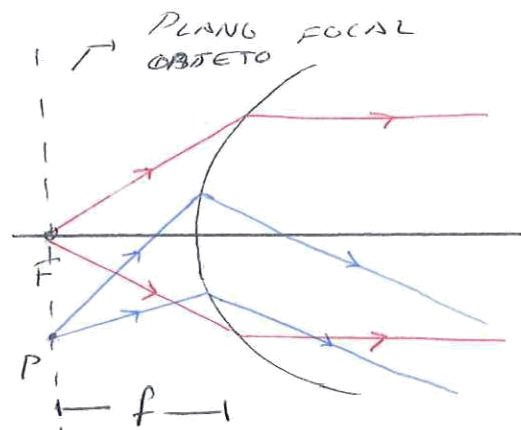 PLANO FOCAL
OBJETO
F
P
f